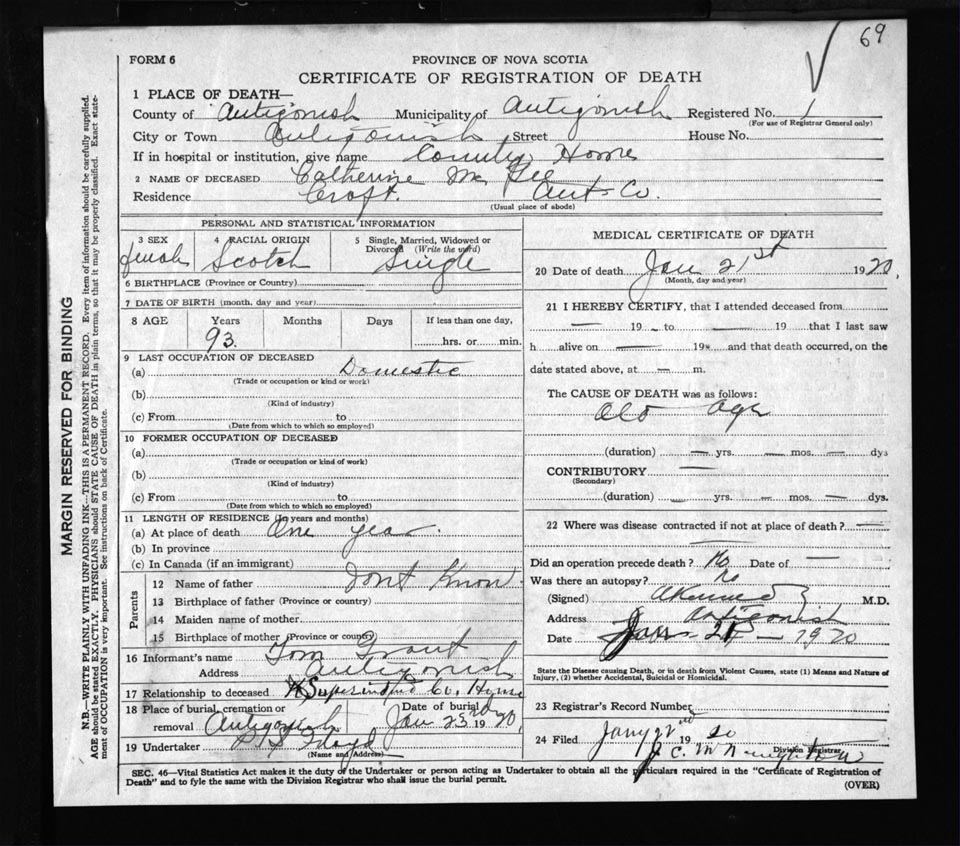 69
FORM 6
PROVINCE OF NOVA SCOTIA
CERTIFICATE OF REGISTRATION OF DEATH
1 PLACE OF DEATH—
County of Antigonish Municipality of Antigonish Registered No. 1
(For use of Registrar General only)
City or Town Antigonish Street House No.
If in hospital or institution, give name County Home
2 NAME OF DECEASED Catherine Mc Gee
Residence Croft. Ant- Co.
(Usual place of abode)
PERSONAL AND STATISTICAL INFORMATION
3 SEX 4 RACIAL ORIGIN 5 Single, Married, Widowed or Divorced (Write the word)
female Scotch Single
6 BIRTHPLACE (Province or Country)
7 DATE OF BIRTH (month, day and year)
8 AGE Years Months Days If less than one day,
93. hrs. or min.
9 LAST OCCUPATION OF DECEASED
(a) Domestic
(Trade or occupation or kind or work)
(b)
(Kind of industry)
(c) From to
(Date from which to which so employed)
10 FORMER OCCUPATION OF DECEASED
(a)
(Trade or occupation or kind of work)
(b)
(Kind of industry)
(c) From to
(Date from which to which so employed)
11 LENGTH OF RESIDENCE (In years and months)
(a) At place of death One year
(b) In province
(c) In Canada (if an immigrant)
Parents
12 Name of father Dont Know
13 Birthplace of father (Province or country)
14 Maiden name of mother
15 Birthplace of mother (Province or country)
16 Informant's name Tom Grant
Address Antigonish
17 Relationship to deceased Co. Home
18 Place of burial, cremation or removal Antigonish Date of burial Jan 23rd 1920
19 Undertaker
(Name and Address)
MEDICAL CERTIFICATE OF DEATH
20 Date of death Jan 21st 1920.
(Month, day and year)
21 I HEREBY CERTIFY, that I attended deceased from
— 19 – to — 19 — that I last saw
h alive on — 19 and that death occurred, on the
date stated above, at — m.
The CAUSE OF DEATH was as follows:
Old Age
(duration) — yrs. — mos. — dys
CONTRIBUTORY —
(Secondary)
(duration) — yrs. — mos. — dys.
22 Where was disease contracted if not at place of death? —
Did an operation precede death? No Date of —
Was there an autopsy? No
(Signed) M.D.
Address Antigonish
Date Jan 21 – 1920
State the Disease causing Death, or in death from Violent Causes, state (1) Means and Nature of
Injury, (2) whether Accidental, Suicidal or Homicidal.
23 Registrar's Record Number
24 Filed Jany 22nd 1920
J. C. McNaughton
Division Registrar
SEC. 46—Vital Statistics Act makes it the duty of the Undertaker or person acting as Undertaker to obtain all the particulars required in the "Certificate of Registration of
Death" and to fyle the same with the Division Registrar who shall issue the burial permit.
(OVER)
MARGIN RESERVED FOR BINDING
N.B.—WRITE PLAINLY WITH UNFADING INK—THIS IS A PERMANENT RECORD. Every item of information should be carefully supplied.
AGE should be stated EXACTLY. PHYSICIANS should STATE CAUSE OF DEATH in plain terms, so that it may be properly classified. Exact state-
ment of OCCUPATION is very important. See instructions on back of Certificate.